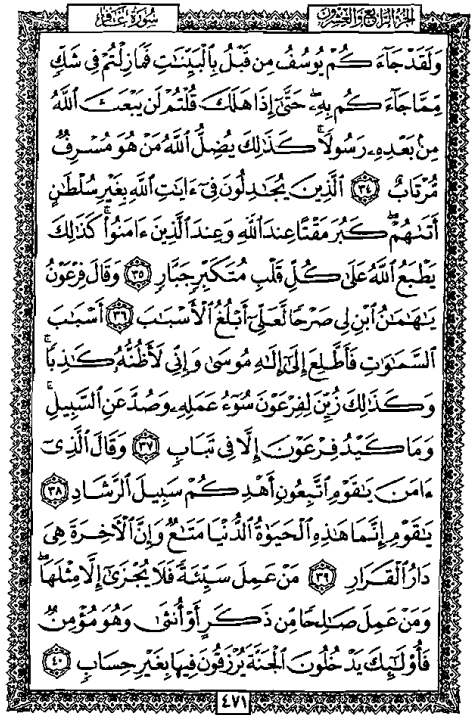 الجزء الرابع والعشرون
سورة غافر
وَلَقَدْ جَآءَكُمْ يُوسُفُ مِن قَبْلُ بِٱلْبَيِّنَٰتِ فَمَازِلْتُمْ فِى شَكٍّ
مِّمَّا جَآءَكُم بِهِۦۖ حَتَّىٰٓ إِذَا هَلَكَ قُلْتُمْ لَن يَبْعَثَ ٱللَّهُ
مِنۢ بَعْدِهِۦ رَسُولًاۚ كَذَٰلِكَ يُضِلُّ ٱللَّهُ مَنْ هُوَ مُسْرِفٌ
مُّرْتَابٌ ٣٤ ٱلَّذِينَ يُجَٰدِلُونَ فِىٓ ءَايَٰتِ ٱللَّهِ بِغَيْرِ سُلْطَٰنٍ
أَتَىٰهُمْۖ كَبُرَ مَقْتًا عِندَ ٱللَّهِ وَعِندَ ٱلَّذِينَ ءَامَنُوا۟ۚ كَذَٰلِكَ
يَطْبَعُ ٱللَّهُ عَلَىٰ كُلِّ قَلْبِ مُتَكَبِّرٍ جَبَّارٍ ٣٥ وَقَالَ فِرْعَوْنُ
يَٰهَٰمَٰنُ ٱبْنِ لِى صَرْحًا لَّعَلِّىٓ أَبْلُغُ ٱلْأَسْبَٰبَ ٣٦ أَسْبَٰبَ
ٱلسَّمَٰوَٰتِ فَأَطَّلِعَ إِلَىٰٓ إِلَٰهِ مُوسَىٰ وَإِنِّى لَأَظُنُّهُۥ كَٰذِبًاۚ
وَكَذَٰلِكَ زُيِّنَ لِفِرْعَوْنَ سُوٓءُ عَمَلِهِۦ وَصُدَّ عَنِ ٱلسَّبِيلِۚ
وَمَا كَيْدُ فِرْعَوْنَ إِلَّا فِى تَبَابٍ ٣٧ وَقَالَ ٱلَّذِىٓ
ءَامَنَ يَٰقَوْمِ ٱتَّبِعُونِ أَهْدِكُمْ سَبِيلَ ٱلرَّشَادِ ٣٨
يَٰقَوْمِ إِنَّمَا هَٰذِهِ ٱلْحَيَوٰةُ ٱلدُّنْيَا مَتَٰعٌ وَإِنَّ ٱلْءَاخِرَةَ هِىَ
دَارُ ٱلْقَرَارِ ٣٩ مَنْ عَمِلَ سَيِّئَةً فَلَا يُجْزَىٰٓ إِلَّا مِثْلَهَاۖ
وَمَنْ عَمِلَ صَٰلِحًا مِّن ذَكَرٍ أَوْ أُنثَىٰ وَهُوَ مُؤْمِنٌ
فَأُو۟لَٰٓئِكَ يَدْخُلُونَ ٱلْجَنَّةَ يُرْزَقُونَ فِيهَا بِغَيْرِ حِسَابٍ ٤٠
٤٧١